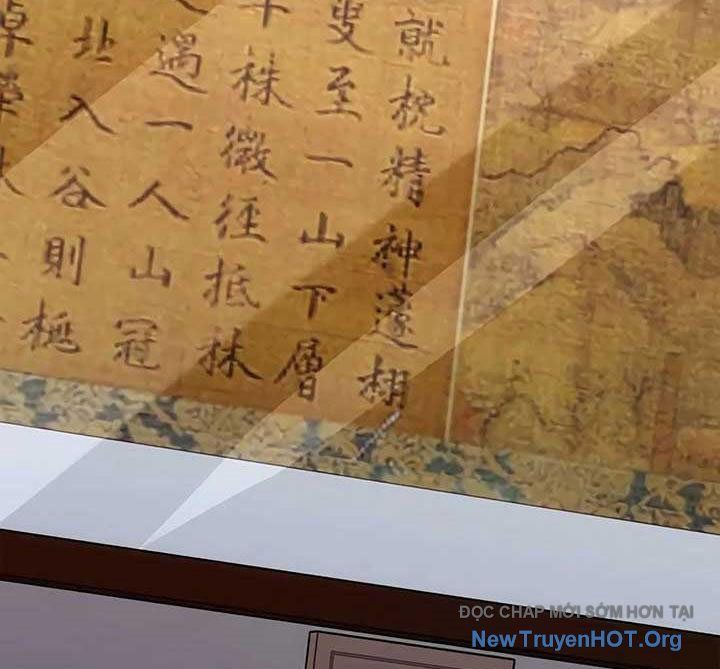 就枕精神蘧栩
叟至一山下層
株微徑抵林
遇一人山冠
北入谷則桃
ĐỌC CHAP MỚI SỚM HƠN TẠI
NewTruyenHOT.Org